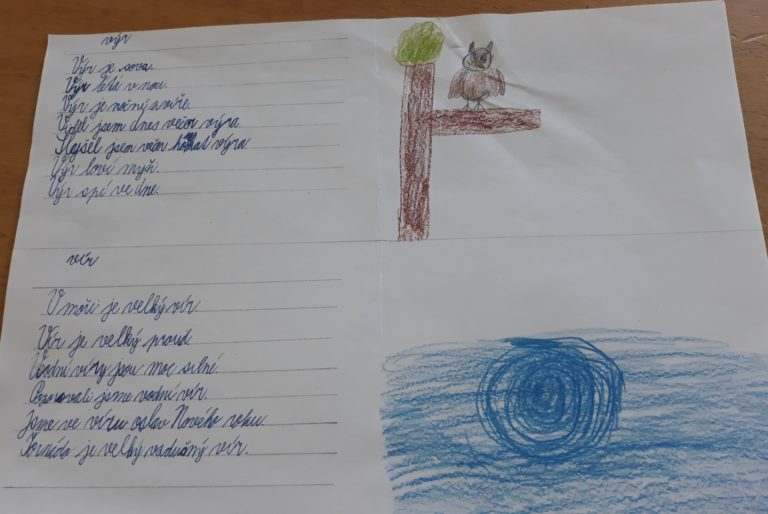 výr
Výr je sova.
Výr létá v noci.
Výr je noční zvíře.
Viděl jsem dnes večer výra.
Slyšel jsem večer houkat výra
Výr loví myši.
Výr spí ve dne.
vír
V moři je velký vír.
Vír je velký proud.
Vodní víry jsou moc silné.
Pozorovali jsme vodní vír.
Jsme ve víru oslav Nového roku.
Tornádo je velký vzdušný vír.